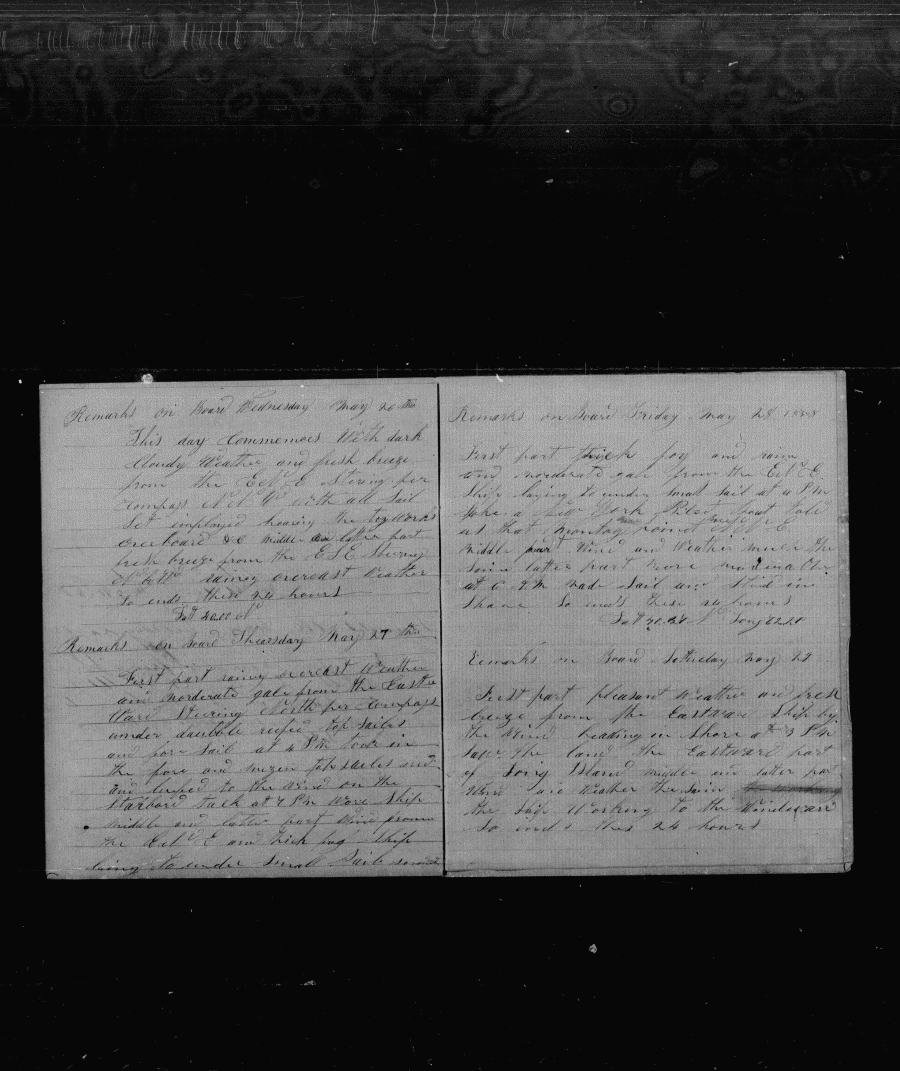 Remarks on Board Wednesday May 26 th
This day Commences With dark
Cloudy Weather and fresh breeze
from the E by N E stering per
Compass N N W with all sail
Set employed heaving the tryworks
overboard &c middle an latter part
fresh breeze from the E S E Stering
N by W rainey overcast Weather
So ends these 24 hours
Remarks on Board Thursday May 27 th
First part rainey overcast Weather
and morderate gale from the East
Ward Steering North per Compass
under dauble reefed top sailes
and fore sail at 4 P M took in
the fore and mizen top sailes and
and luffed to the wind on the
starbord tack at 7 P M Wore Ship
middle and later part Wind from
the E by N E and thick fog Ship
laing to under small Sail
Remarks on Board Friday May 28
First part thick fog and rain
and morderate gale from the E by N E
Ship laying to under small sail at 4 P M
Spoke a New York Pilot Boat told
us that Montag point
middle part Wind and Weather much the
same latter part more
at 6 A M made sail and stud in
Shore So ends these 24 hours
Remarks on Board Saturday May 29
First part pleasant Weather and fresh
breeze from the Eastward Ship by
the Wind heading in Shore at 3 P M
saw the land the Eastward part
of Long Island middle and latter part
Wind and Weather the same
the Ship Working to the Windward
So ends thes 24 hours